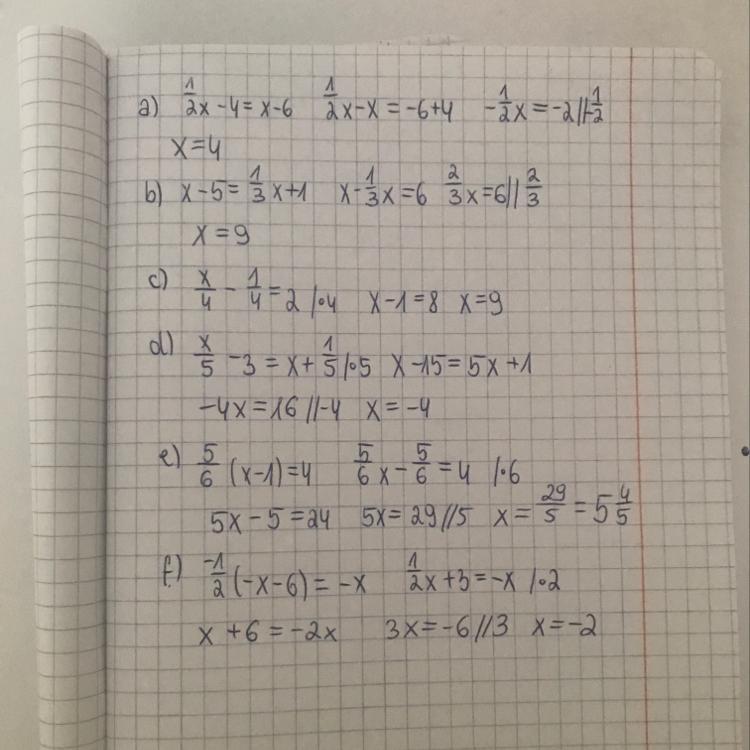 a) 1/2x-4=x-6 1/2x-x=-6+4 -1/2x=-2//-1/2
x=4
b) x-5=1/3x+1 x-1/3x=6 2/3x=6//2/3
x=9
c) x/4-1/4=2/·4 x-1=8 x=9
d) x/5-3=x+1/5/·5 x-15=5x+1
-4x=16//-4 x=-4
e) 5/6(x-1)=4 5/6x-5/6=4 /·6
5x-5=24 5x=29//5 x=29/5=5 4/5
f) -1/2(-x-6)=-x 1/2x+3=-x/·2
x+6=-2x 3x=-6//3 x=-2